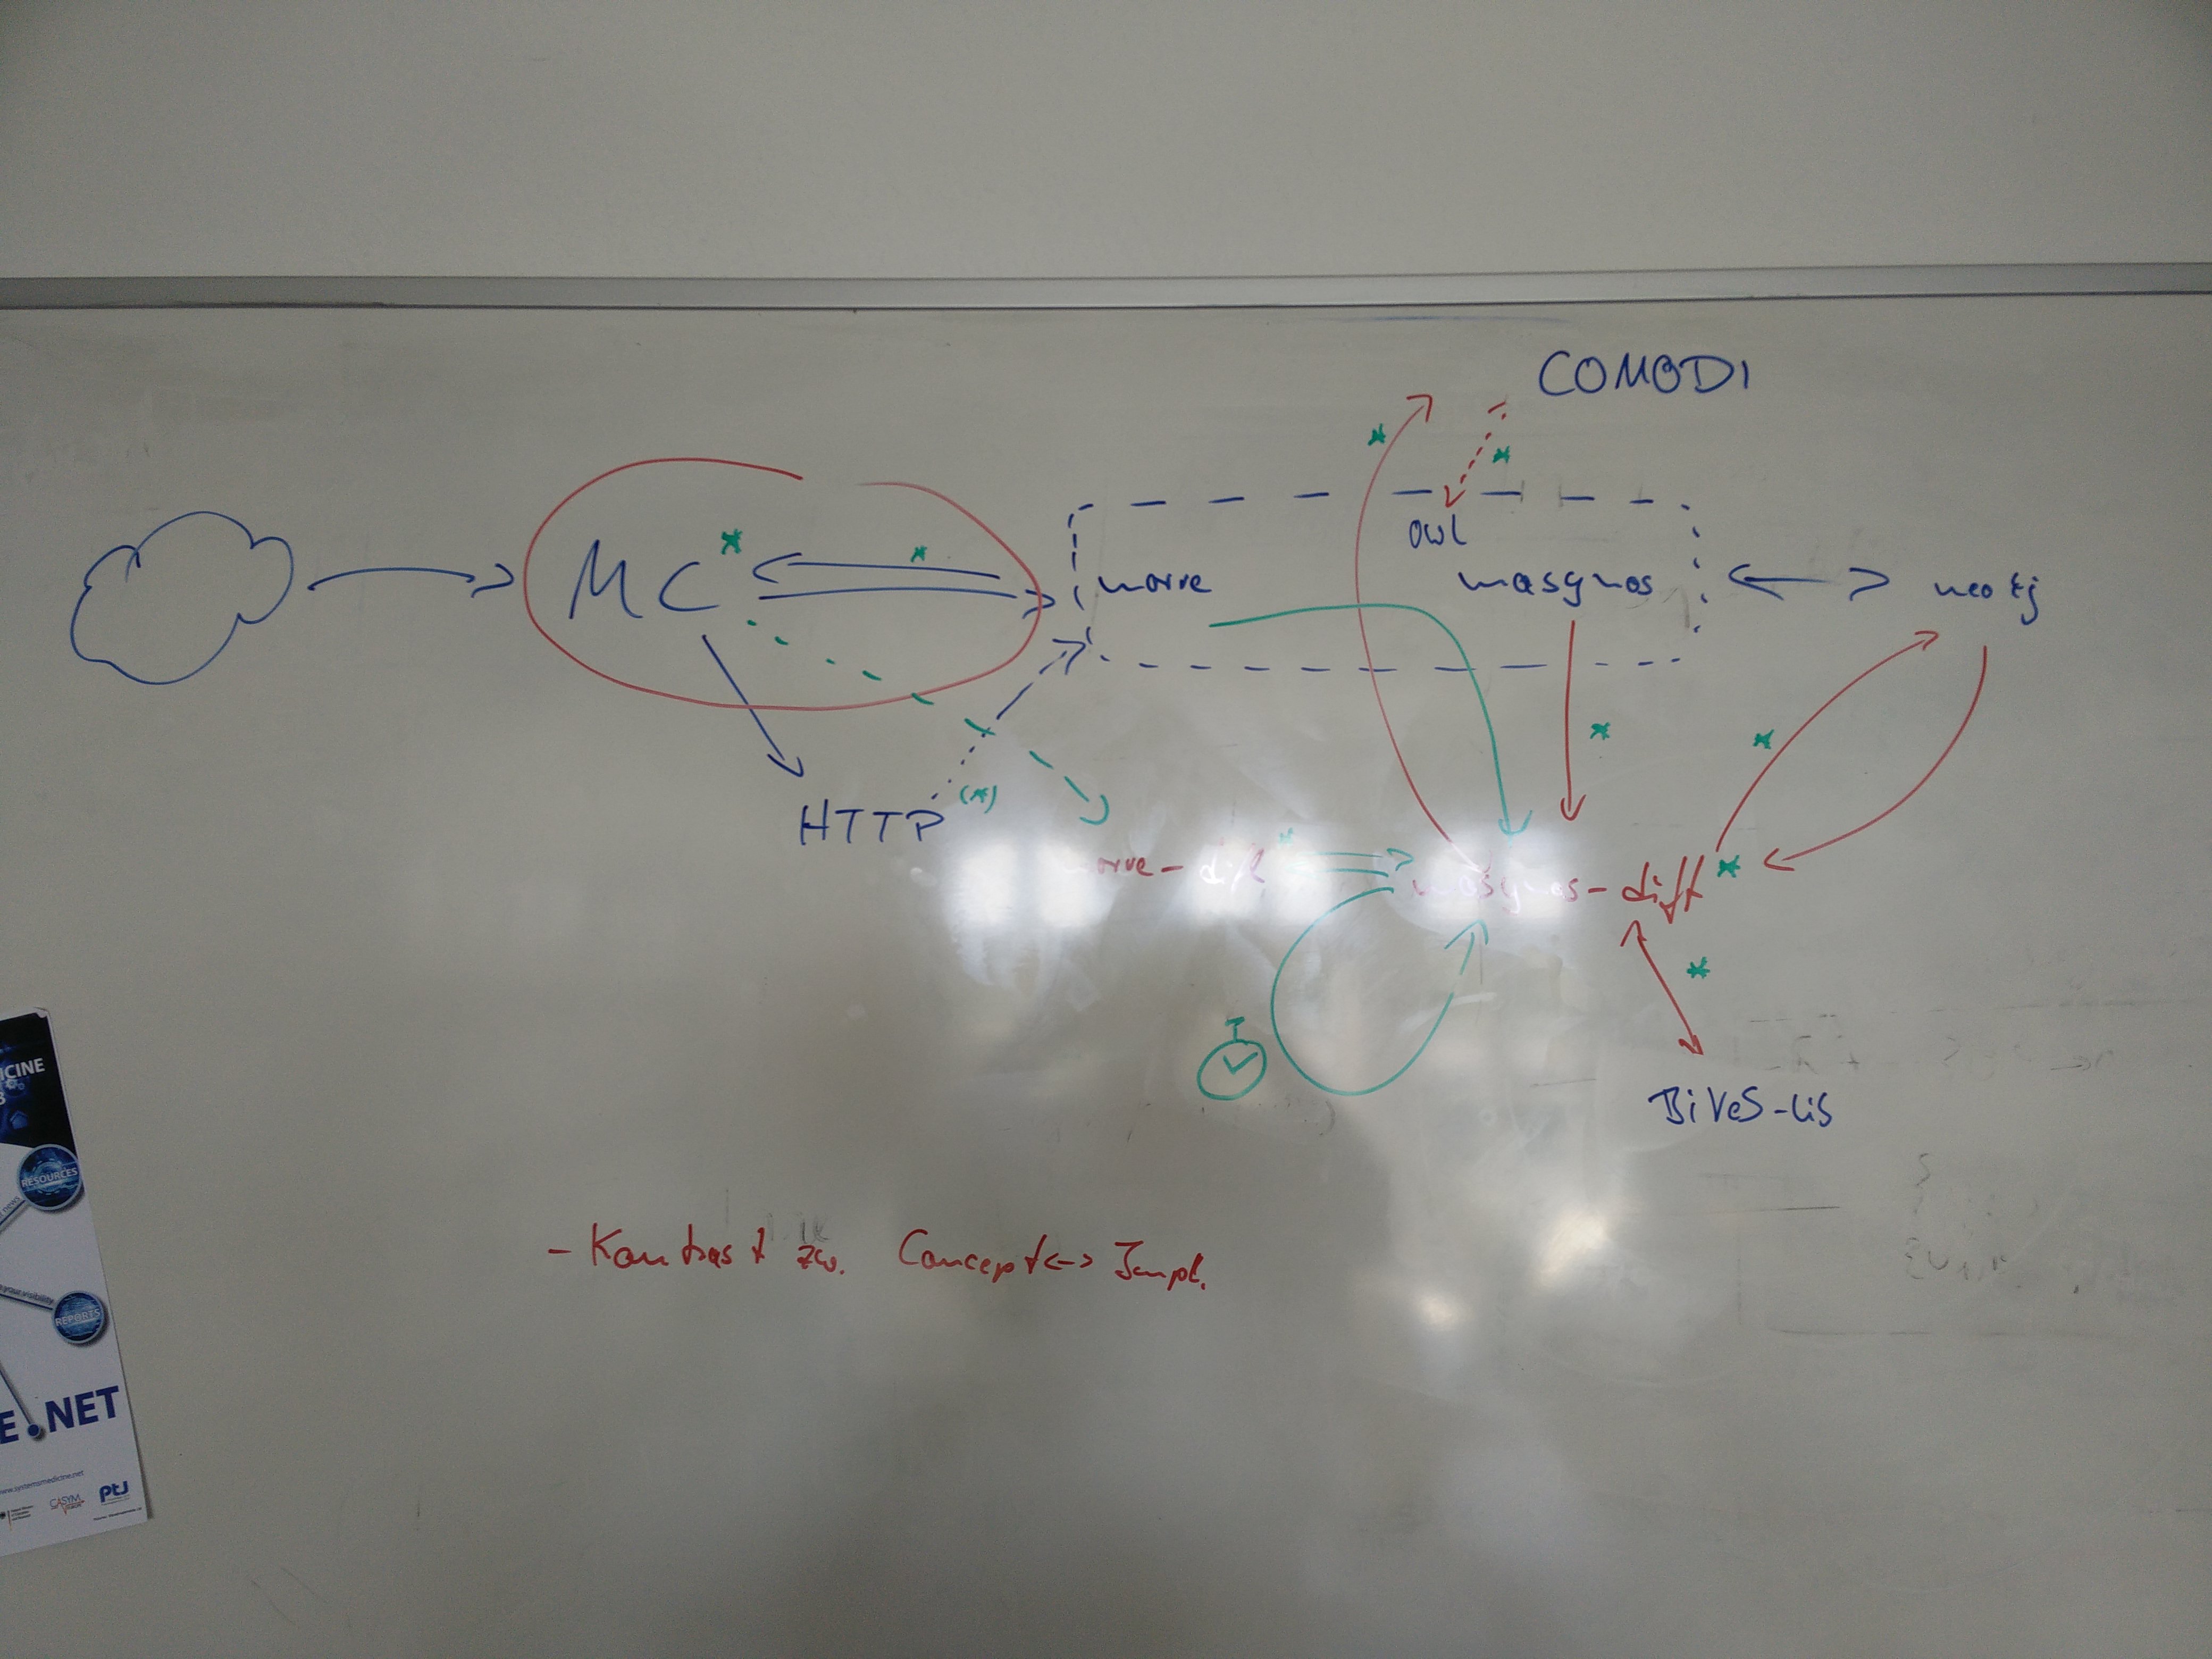 COMODI
*
*
owl
MC*
*
morre
masymos
neo4j
*
*
HTTP
(*)
morre-diff*
masymos-diff*
*
BiVeS-
- Kontrast zw. Concept <-> Impl.
ICINE
RESOURCES
your visibility
REPORTS
E.NET
www.systemsmedicine.net
CASYM
ptJ